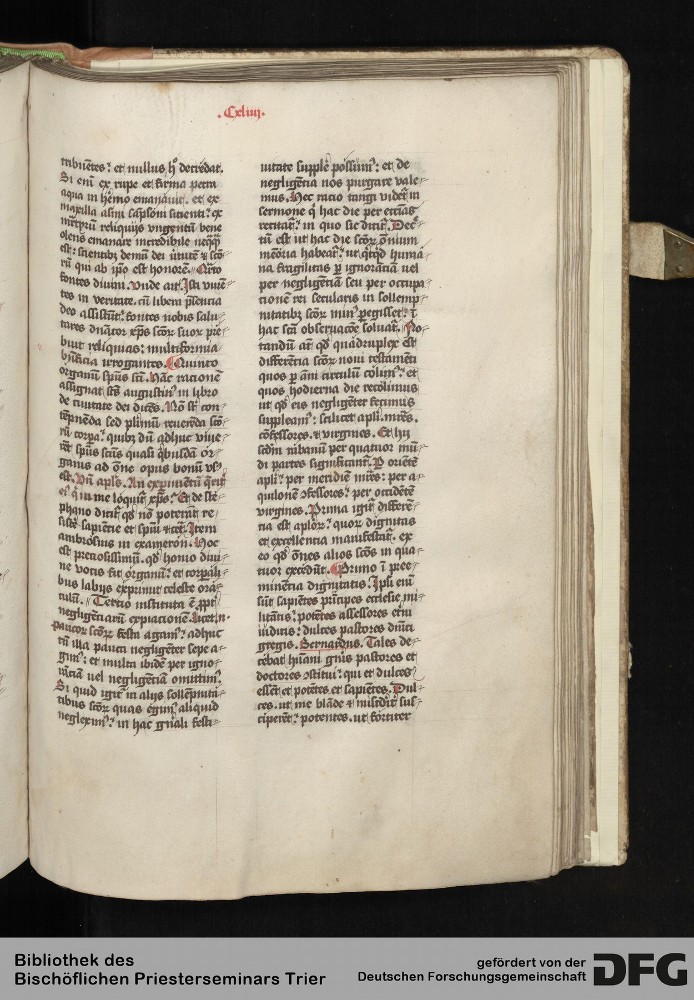 .Cxliiij.
tribuētes: et nullus hͦ decredat.
Si enī ex rupe et firma petra
aqua in hēmo emanauit. et ex
maxilla asini sāpsoni sitienti: ex
mr̄tyrū reliquijs vngentū bene
olens emanare incredibile neq̄q̄
est: scientibꝫ demū dei ūtutē ⁊ scō
rū qui ab ip̄o est honorē. Qr̄to
fontes diuini. vnde aīt Isti viuē
tes in veritate. cū libera p̄sentia
deo assistūt: fontes nobis salu
tares dn̄ator xp̄s scōꝝ suoꝝ p̄e
buit reliquias: multiformia
bn̄ficia irrogantes. Quinto
organū sp̄us scī. Hāc racionē
assignat scs̄ augustin9 in libro
de ciuitate dei dicēs. Nō st̄ con
tēpnēda sed pl̄imū reuerēda scō
rū corpa: quibꝫ dū adhuc viue
rēt sp̄us scūs quasi q̄busdā or
ganis ad ōne opus bonū vs9
est. Vn̄ apl̄s. An exp̄imētū q̄rit
ei9 q̄ in me loquit̄ xp̄s: Et de ste
phano dicit̄ qd̓ nō poterāt re
siste sapiētie et sp̄ui ⁊ cet̄. Item
ambrosius in exameron. Hoc
est preciosissimū. qd̓ homo diui
ne vocis fit organū: et corpali
bus labijs exprimit celeste orā
culū. Tercio instituta ē ꝓpt̄
negligētiarū expiacionē. Licet .n.
paucoꝝ scōꝝ festa agam9: adhuc
tn̄ illa pauci negligēter sepe a
gim9: et multa ibidē per igno
rātiā vel negligētiā omittim9.
Si quid igit̄ in alijs sollēpnita
tibus scōꝝ quas egim9 aliquid
neglexim9: in hac gn̄ali festi
uitate supple possum9: et de
negligētia nos purgare vale
mus. Hec racio tangi videt̄ in
sermone q̄ hac die per ecc̄iās
recitat̄: in quo sic dicit̄. Decr̄
tū est ut hac die scōꝝ ōnium
mēoria habeat̄: ut q̄tqd̓ humā
na fragilitas ꝑ ignorāciā uel
per negligētiā seu per occupa
tionē rei secularis in sollemp
nitatibꝫ scōꝝ min9 peregisset: ī
hac scā obseruacōe soluat̄. No
tandū aūt qd̓ quadruplex est
differētia scōꝝ noui testamēti
quos ꝑ āni circulū colim9: et
quos hodierna die recolimus
ut qd̓ eis negligēter fecimus
suppleam9: scilicet apl̄i. mr̄es.
cōfessores. ⁊ virgines. Et hij
scdm̄ rabanū per quatuor mū
di partes significant̄. P orientē
apl̄i: per meridiē mr̄es: per a
quilonē ꝯfessores: per occidētē
virgines. Prima igit̄ differē
tia est aploꝝ: quoꝝ dignitas
et excellentia manifestat̄. ex
eo qd̓ ōnes alios scōs in qua
tuor excedūt. Primo ī pree
minētia dignitatis. Ipsi enī
sūt sapiētes prīcipes ecclesie mi
litātis: potētes assessores et̄ni
iudicis: dulces pastores dn̄ici
gregis. Bernardus. Tales de
cebat hūani gn̄is pastores et
doctores ꝯstitui: qui et dulces
essēt et potētes et sapiētes. Dul
ces. ut me blāde ⁊ misc̄dit̓ sus
ciperēt: potentes. ut fortiter
Bibliothek des
Bischöflichen Priesterseminars Trier
gefördert von der
Deutschen Forschungsgemeinschaft
DFG